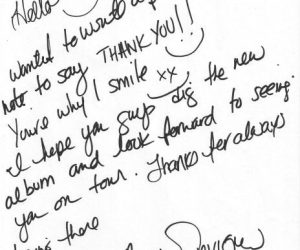 Hello
wanted to write a
note to say THANK YOU!!
You're why I smile xx
I hope you guys dig the new
album and look forward to seeing
you on tour. Thanks for always
being there